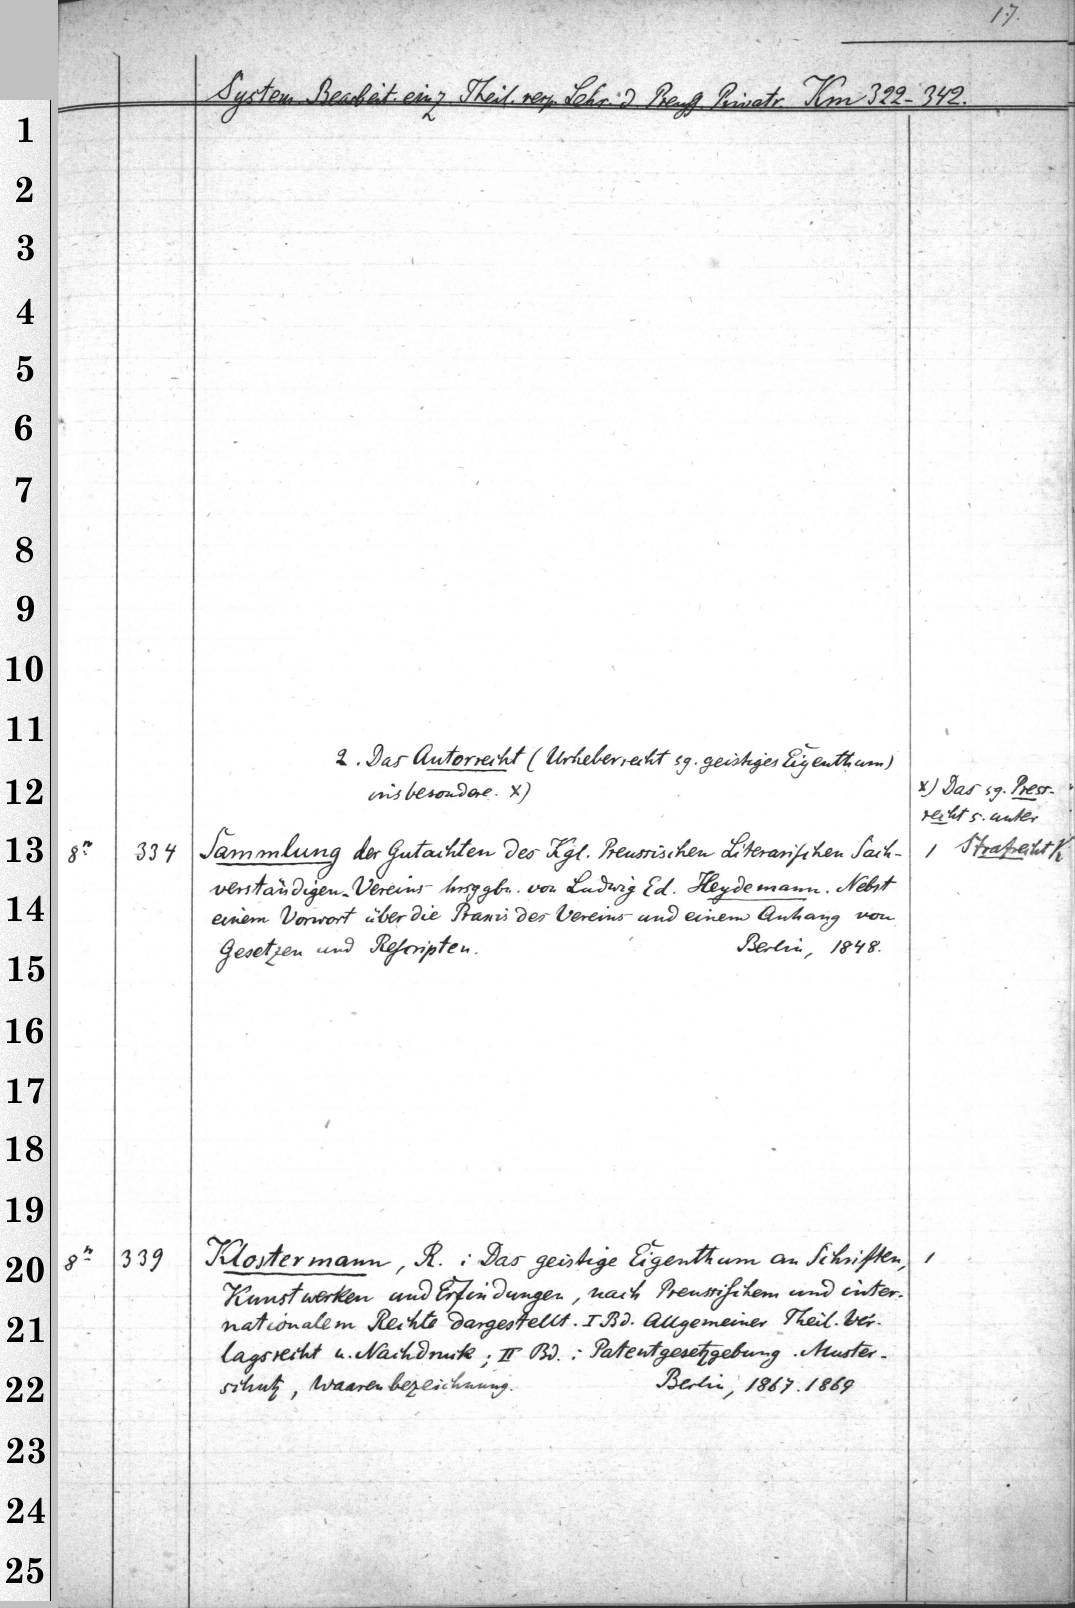 17.
System. Bearbeit. einz. Theil. resp. Lehr. d. Preuß. Privatr. Km 322–342.
1
2
3
4
5
6
7
8
9
10
11
2. Das Autorrecht (Urheberrecht sg. geistiges Eigenthum)
12
insbesondere. x)
x) Das sg. Press-
recht s. unter
Strafrecht K
13
8º 334 Sammlung der Gutachten des Kgl. Preussischen Literarischen Sach- 1
verständigen-Vereins hrsggbn. von Ludwig Ed. Heydemann. Nebst
14
einem Vorwort über die Praxis des Vereins und einem Anhang von
Gesetzen und Rescripten. Berlin, 1848.
15
16
17
18
19
20
8º 339 Klostermann, R. : Das geistige Eigenthum an Schriften, 1
Kunstwerken und Erfindungen, nach Preussischem und inter-
21
nationalem Rechte dargestellt. I Bd. Allgemeiner Theil. Ver-
lagsrecht u. Nachdruck ; II Bd. : Patentgesetzgebung. Muster-
22
schutz, Waarenbezeichnung. Berlin, 1867. 1869
23
24
25